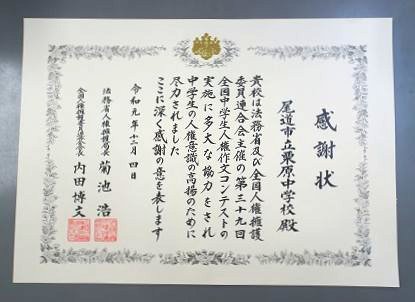 感謝状
尾道市立栗原中学校殿
貴校は法務省及び全国人権擁護
委員連合会主催の第三十九回
全国中学生人権作文コンテストの
実施に多大な協力をされ
中学生の人権意識の高揚のために
尽力されました
ここに深く感謝の意を表します
令和元年十二月四日
法務省人権擁護局長 菊池浩
全国人権擁護委員連合会長 内田博文